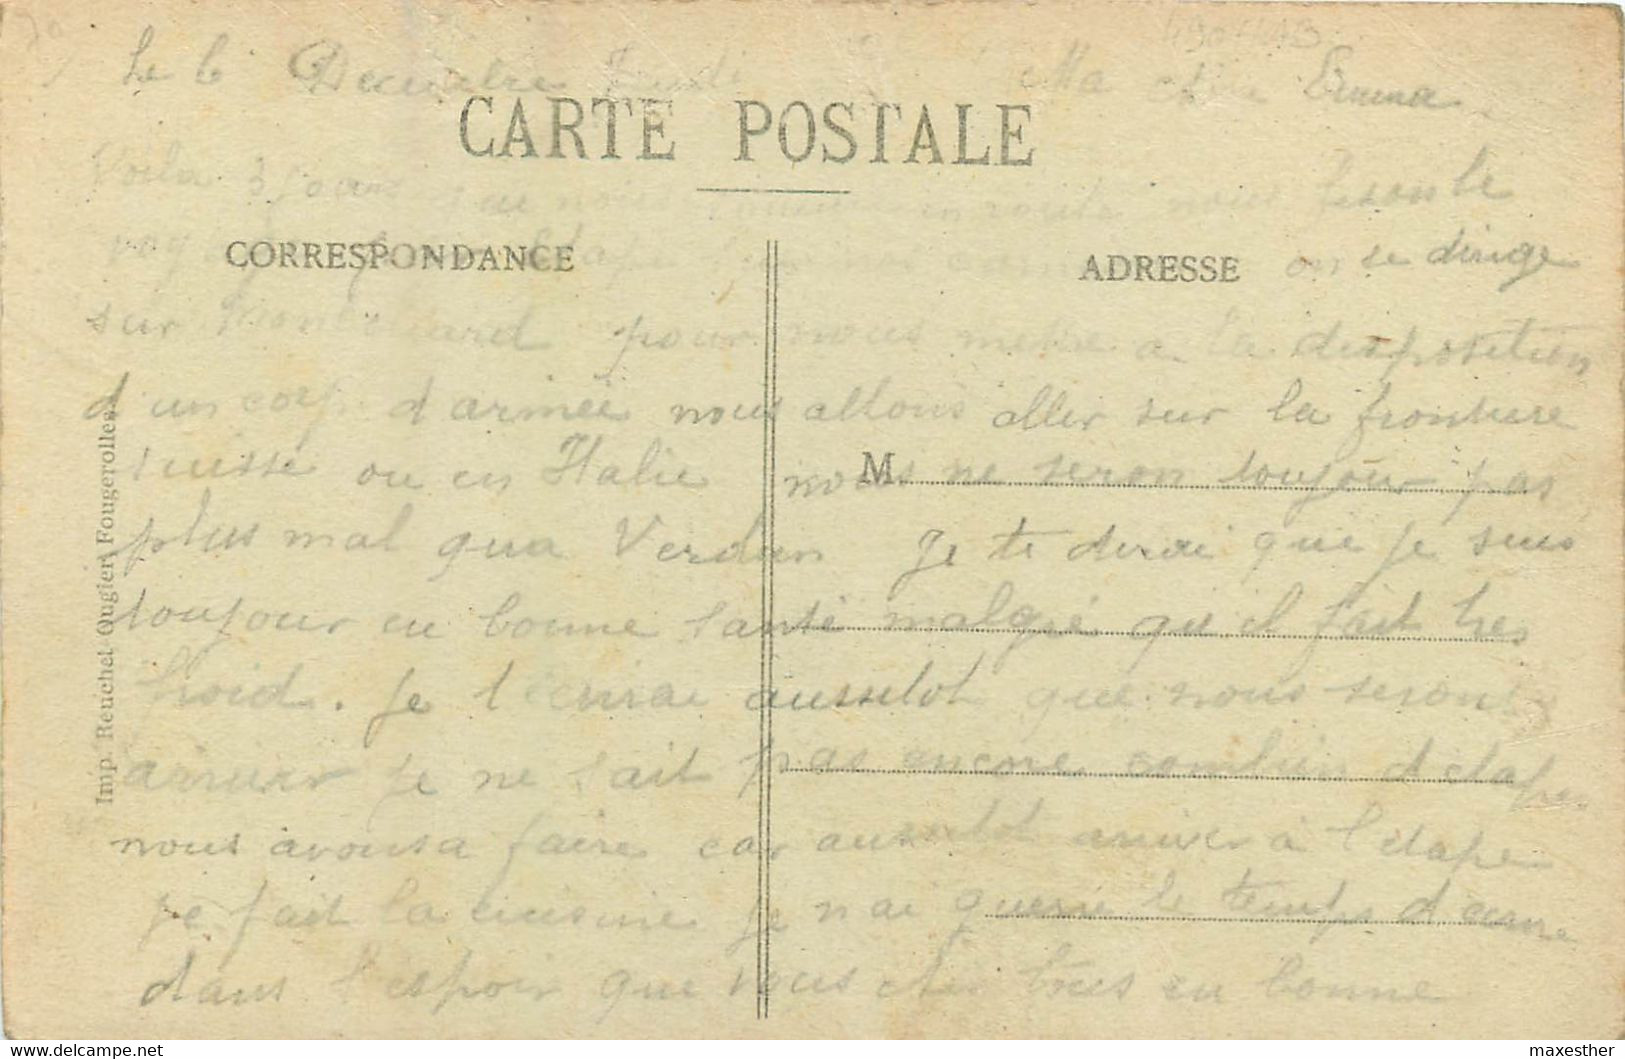 Le 6 Decembre Jeudi Ma chère Emma
CARTE POSTALE
Voila 3 jours que nous sommes en route nous fesons le
CORRESPONDANCE
ADRESSE
voyage par etape on se dirige
sur Montbeliard pour nous metre a la disposition
d'un corp d'armée nous allons aller sur la frontiere
suisse ou en Italie nous ne seron toujour pas
M
plus mal qua Verdun Je te dirai que je suis
toujour en bonne santé malgré qu'il fait tres
froid. Je t'écrirai aussitot que nous seront
arriver je ne sait pas encore combien d'etapes
nous avons a faire car aussitot arriver à l'etape
je fait la cuisine je n'ai guerre le temps d'ecrire
dans l'espoir que vous etes tous en bonne
Imp. Reuchet Ougier, Fougerolles.
delcampe.net
maxesther